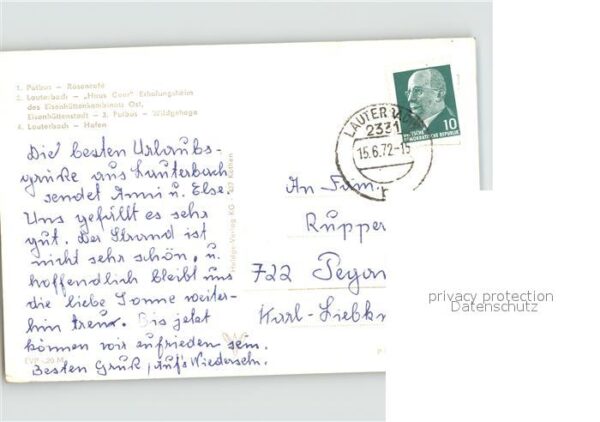 1. Putbus – Rosencafé
2. Lauterbach – „Haus Goor" Erholungsheim
des Eisenhüttenkombinats Ost,
Eisenhüttenstadt – 3. Putbus – Wildgehege
4. Lauterbach – Hafen
Die besten Urlaubs-
grüße aus Lauterbach
sendet Anni u. Else.
Uns gefällt es sehr
gut. Der Strand ist
nicht sehr schön, u.
hoffendlich bleibt uns
die liebe Sonne weiter-
hin treu. Bis jetzt
können wir zufrieden sein.
Besten Gruß, Auf's Wiedersehn.
EVP -,20 M
Köthen
LAUTERBACH
2331
15.6.72-15
DEUTSCHE
DEMOKRATISCHE REPUBLIK
10
An Fam.
Rupper
722 Pegau
Karl-Liebkn
privacy protection
Datenschutz